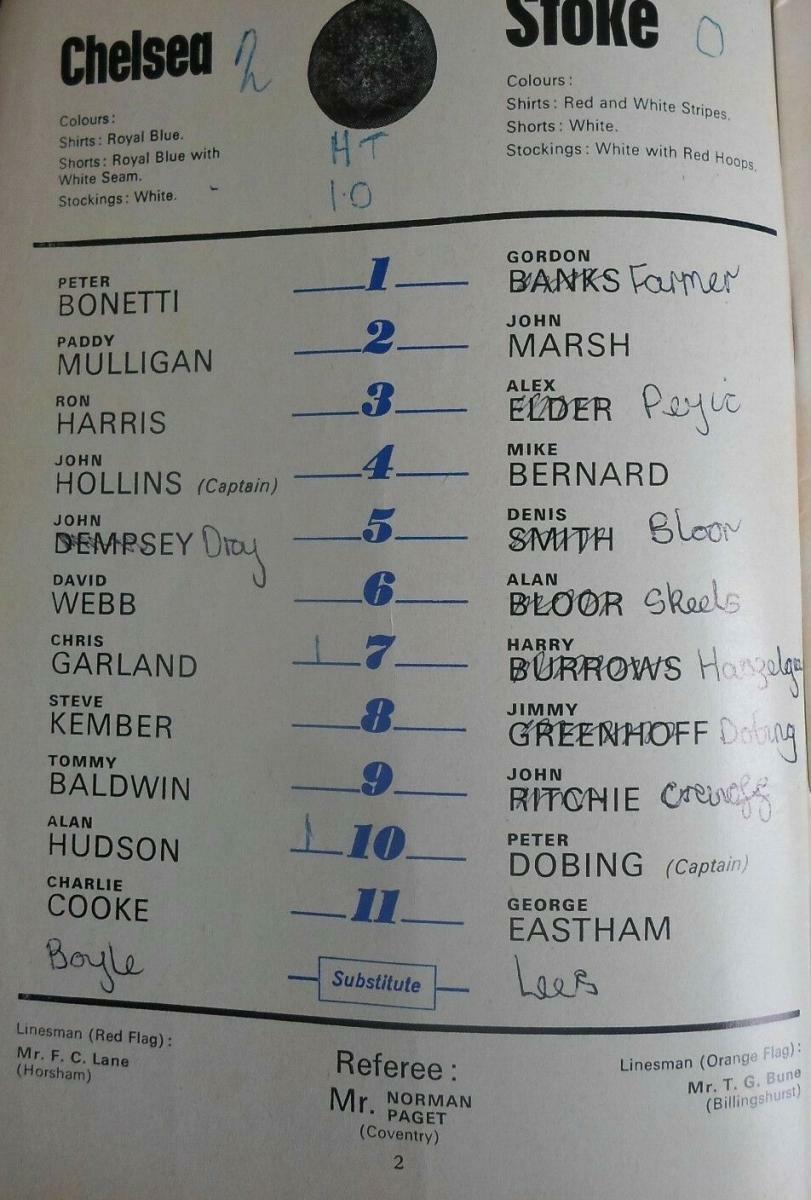 Chelsea 2
Colours:
Shirts: Royal Blue.
Shorts: Royal Blue with
White Seam.
Stockings: White.
HT
1.0
Stoke 0
Colours:
Shirts: Red and White Stripes.
Shorts: White.
Stockings: White with Red Hoops.
PETER
BONETTI
1
GORDON
BANKS Farmer
PADDY
MULLIGAN
2
JOHN
MARSH
RON
HARRIS
3
ALEX
ELDER Pejic
JOHN
HOLLINS (Captain)
4
MIKE
BERNARD
JOHN
DEMPSEY Droy
5
DENIS
SMITH Bloor
DAVID
WEBB
6
ALAN
BLOOR Skeels
CHRIS
GARLAND
1 7
HARRY
BURROWS
STEVE
KEMBER
8
JIMMY
GREENHOFF Dobing
TOMMY
BALDWIN
9
JOHN
RITCHIE
ALAN
HUDSON
1 10
PETER
DOBING (Captain)
CHARLIE
COOKE
11
GEORGE
EASTHAM
Boyle
Substitute
Lees
Linesman (Red Flag):
Mr. F. C. Lane
(Horsham)
Referee:
Mr. NORMAN
PAGET
(Coventry)
Linesman (Orange Flag):
Mr. T. G. Bune
(Billingshurst)
2